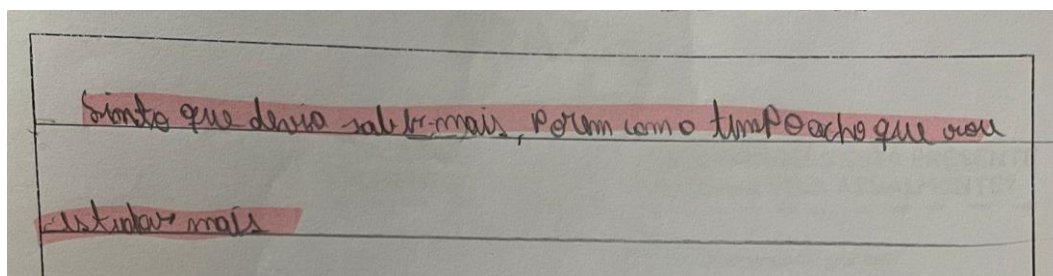 Sinto que devia saber mais, porem como o tempo acho que vou
estudar mais